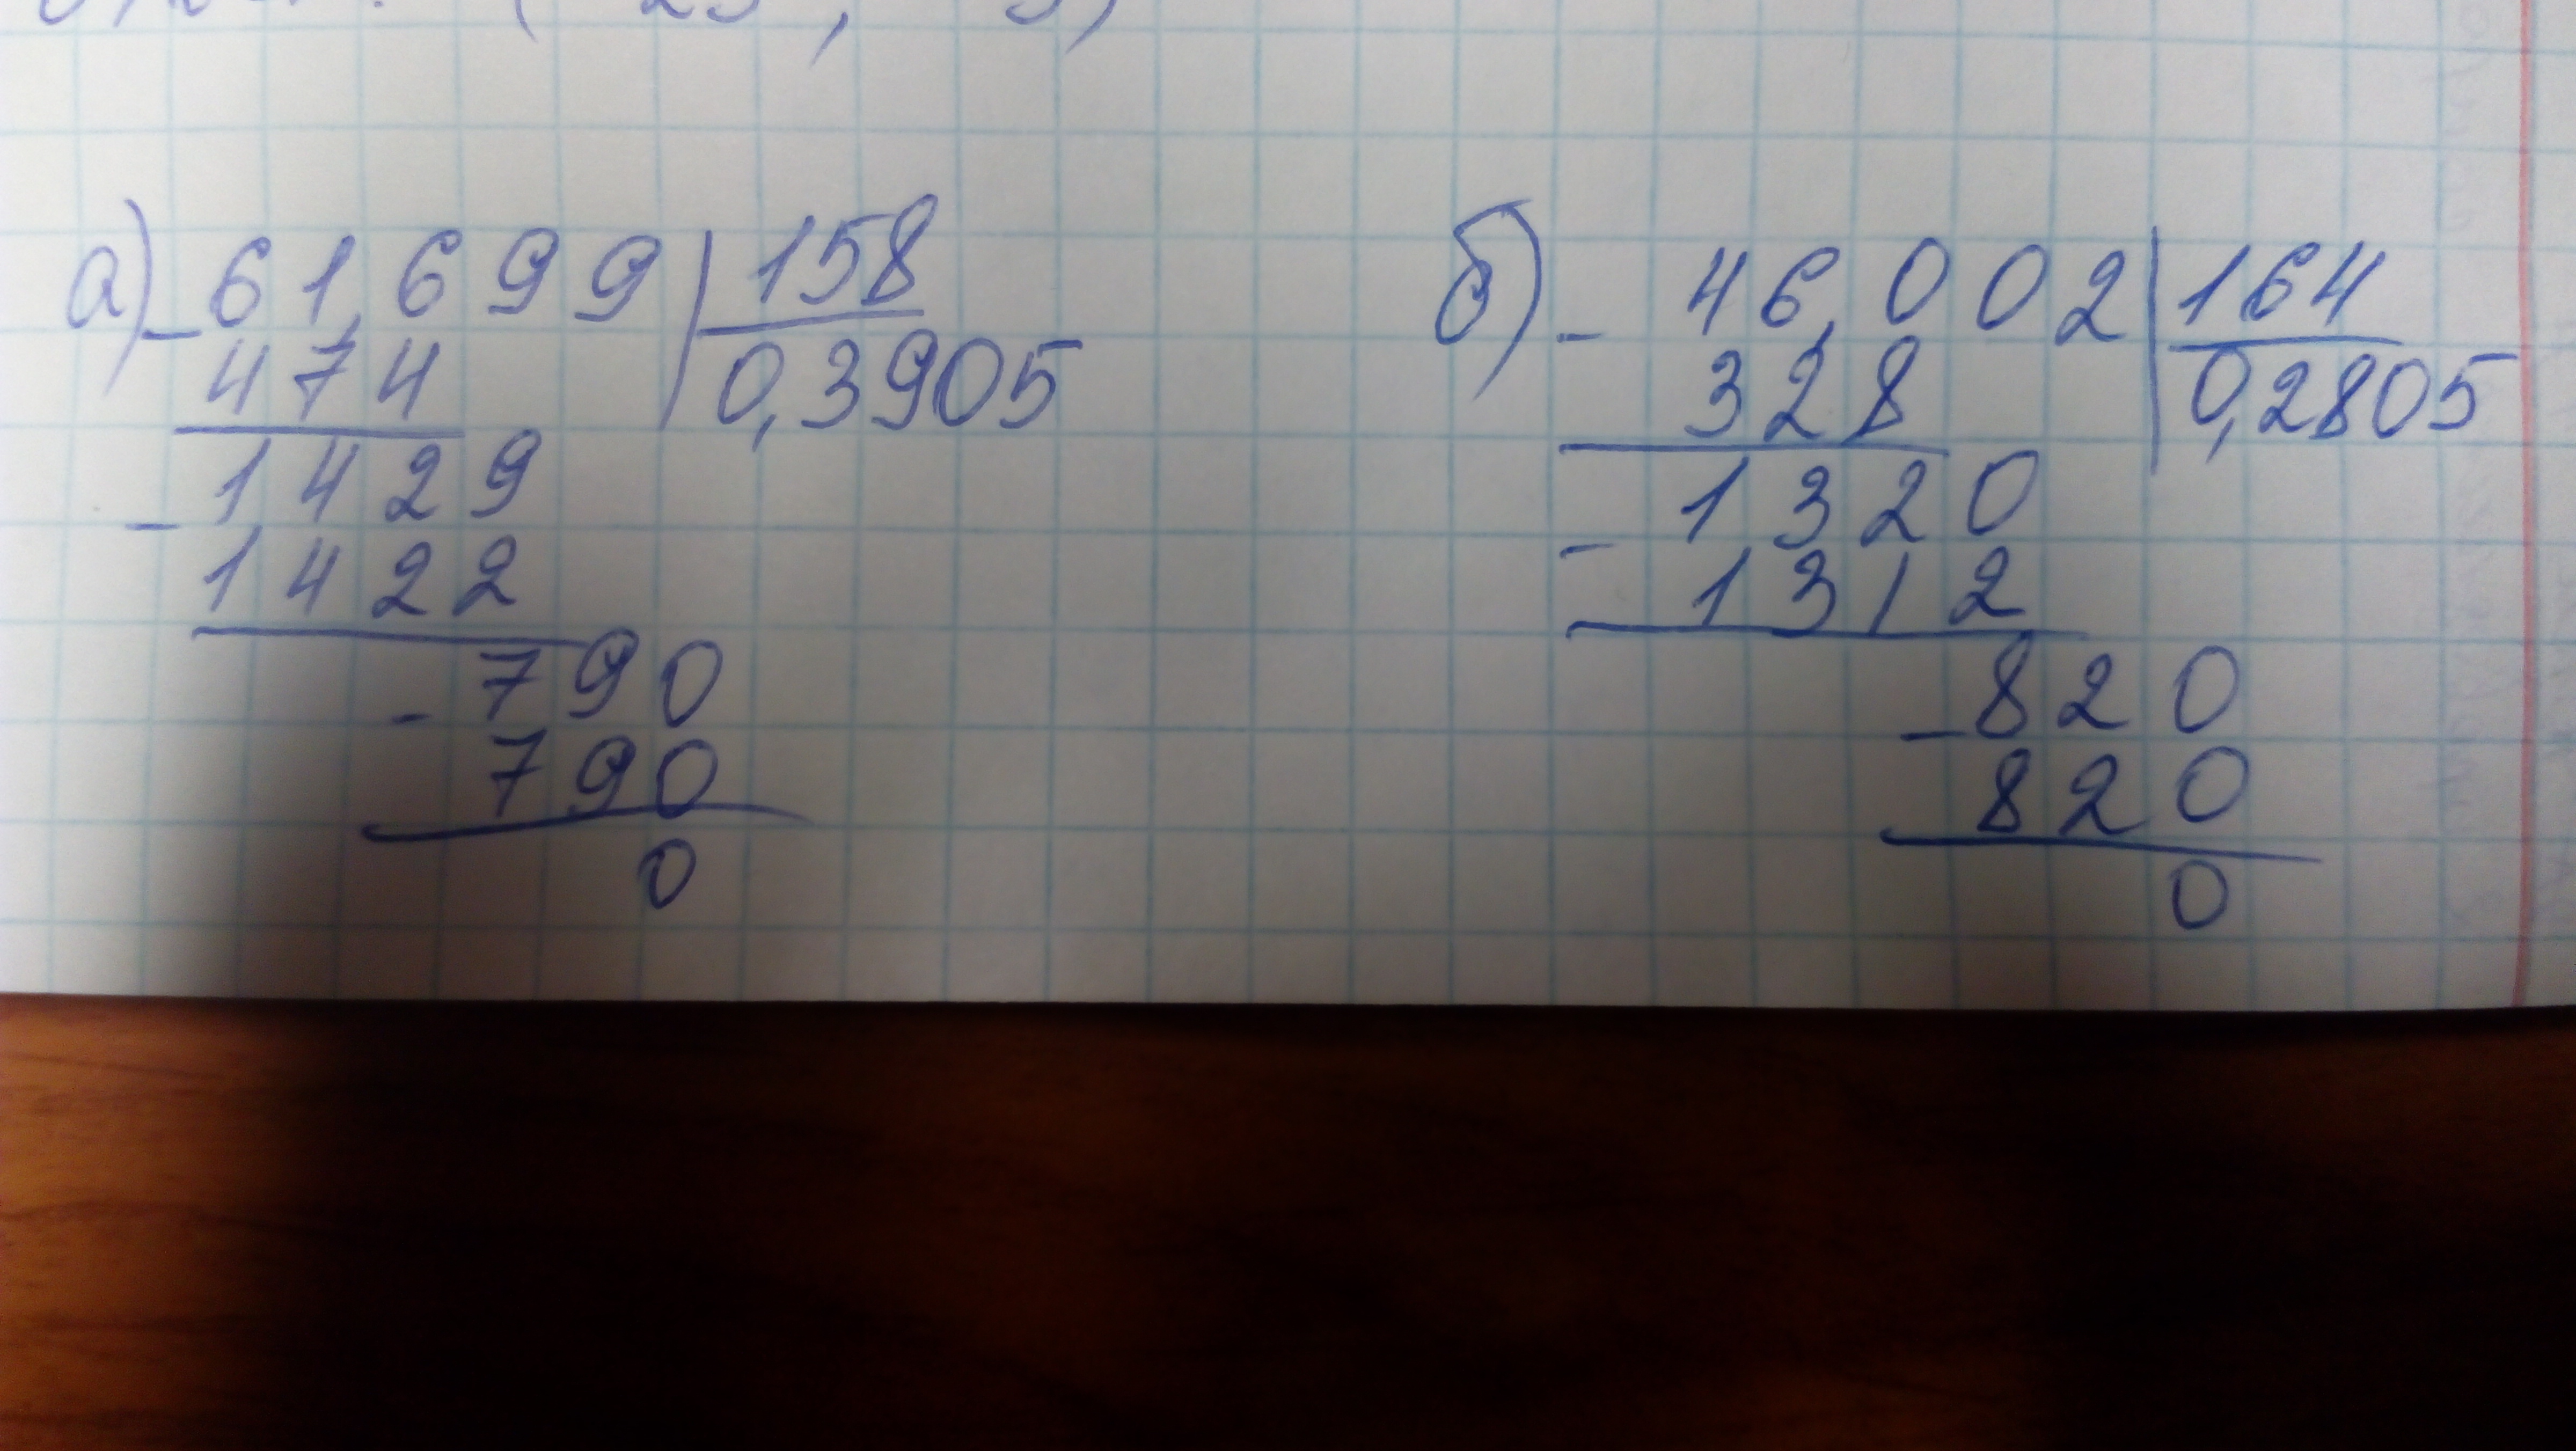 а) - 61,699 | 158
474 0,3905
1429
- 1422
- 790
790
0
б) - 46,002 | 164
328 0,2805
- 1320
1312
- 820
820
0